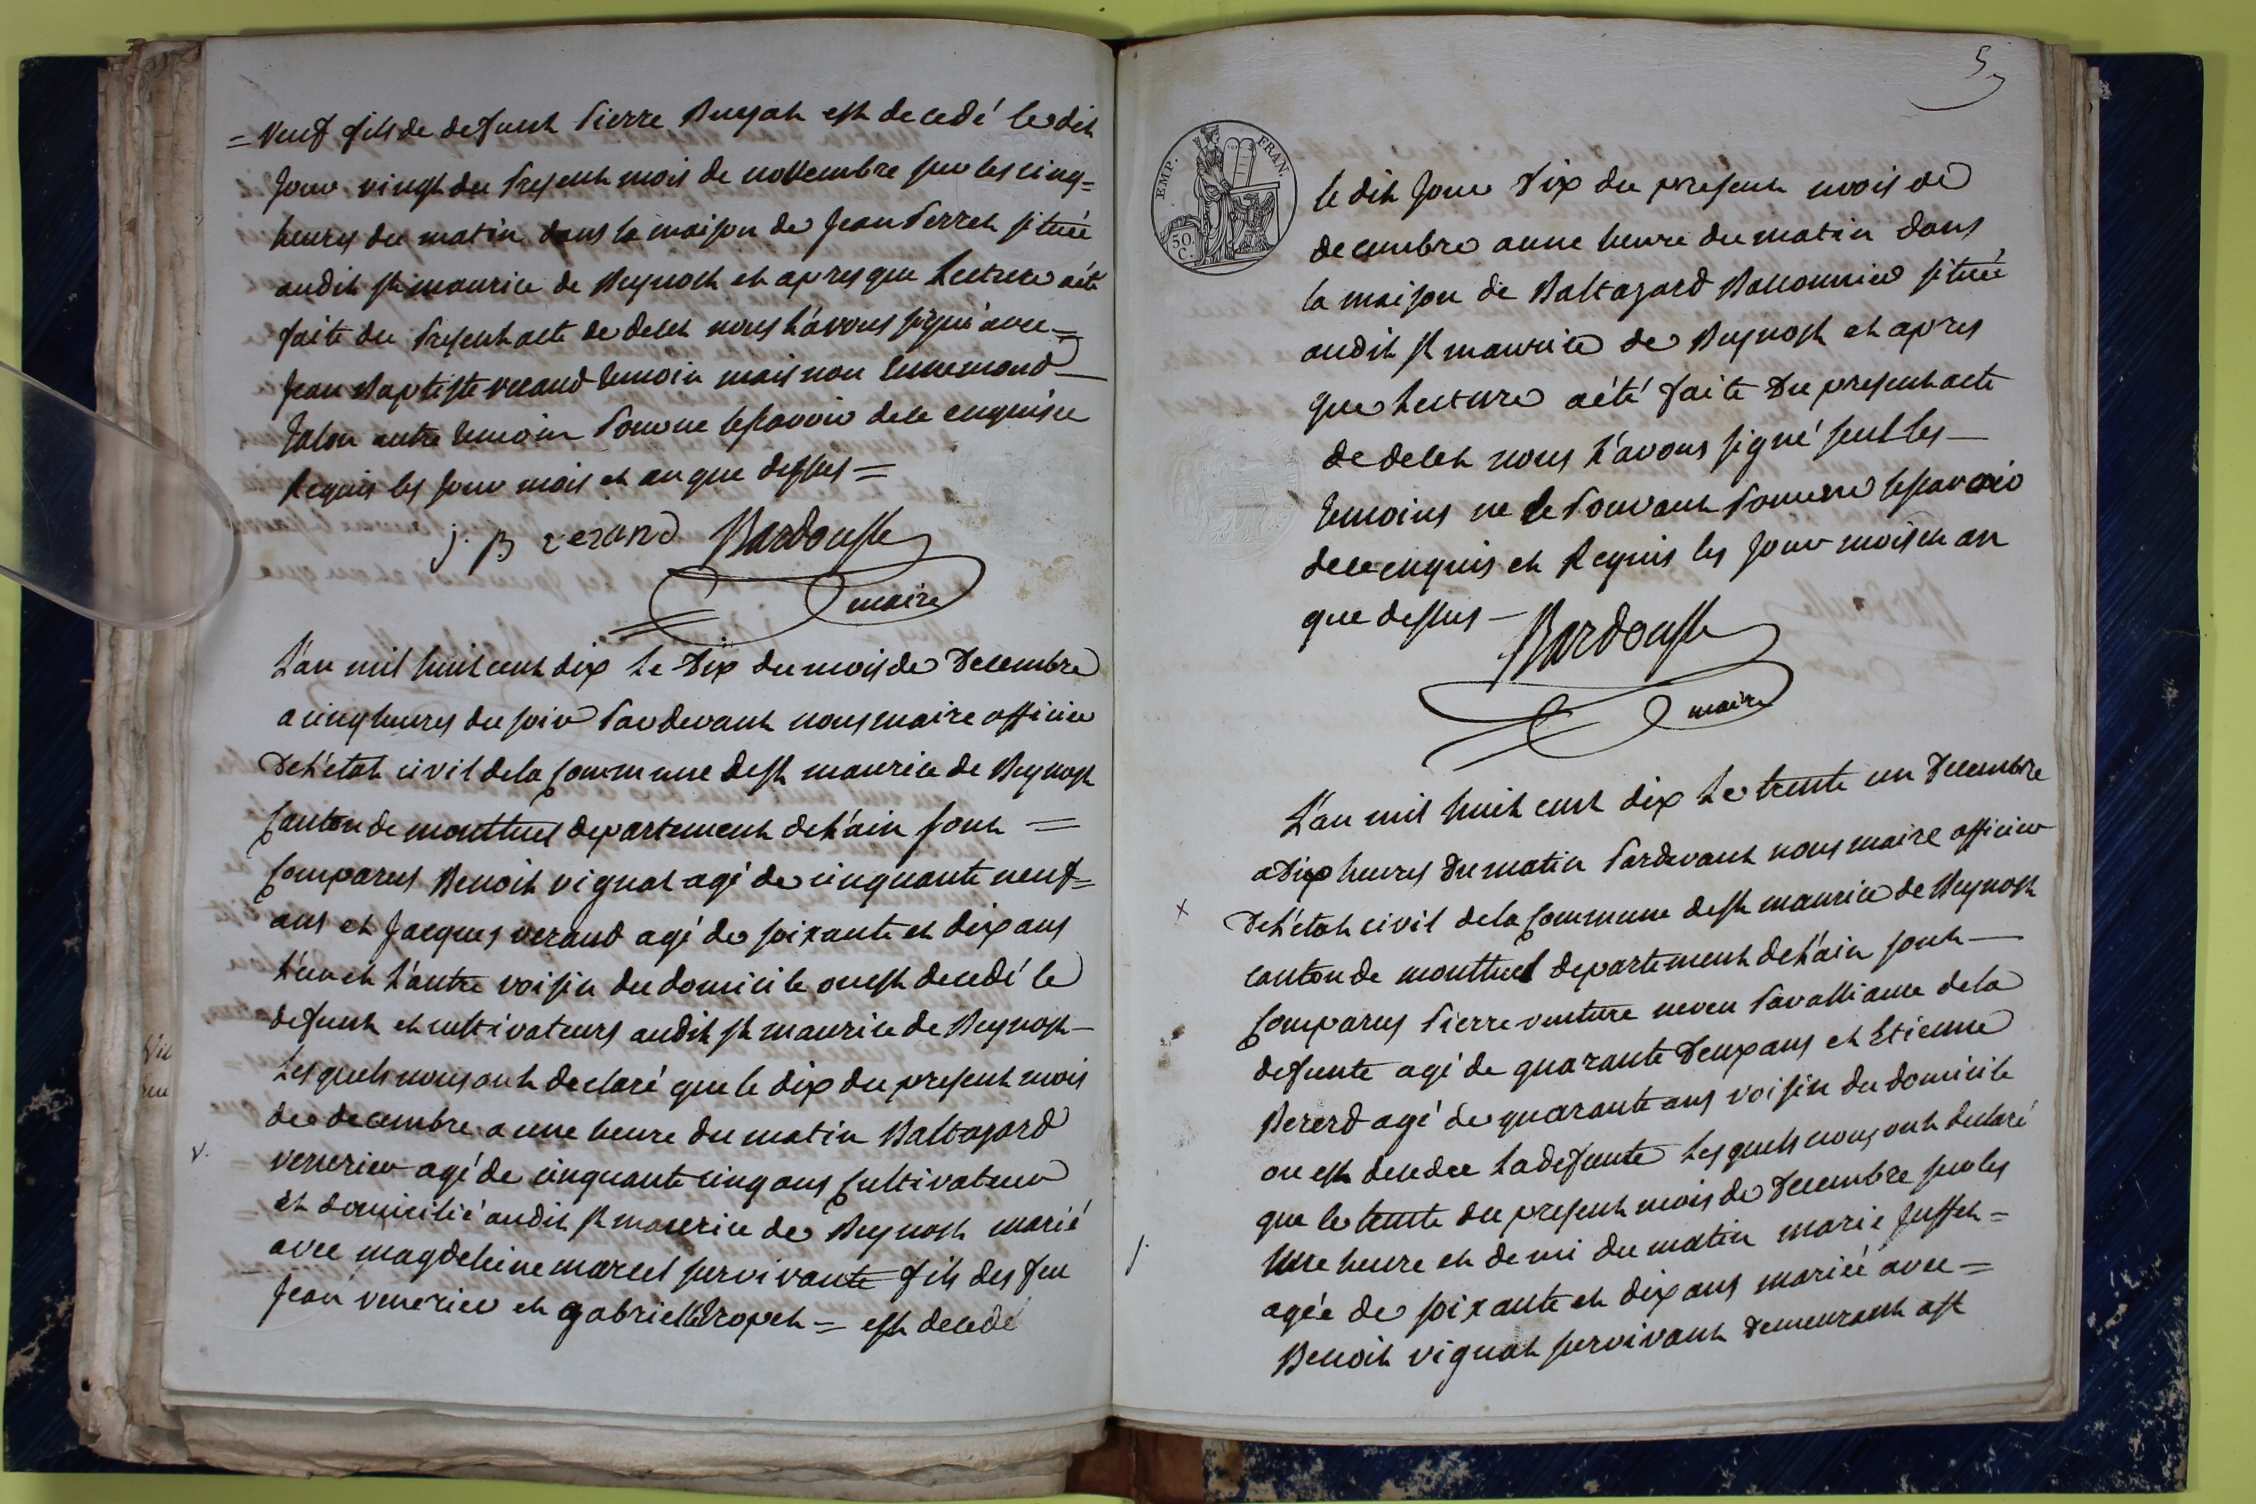 = veuf fils de defunt Pierre est decedé le dit
Jour vingt du Present mois de novembre sur les cinq=
heures du matin dans la maison de Jean Perret située
audit st maurice de Beynost et apres que Lecture a été
faite du Present acte de deces nous L'avons signé avec=
Jean Baptiste verand temoin mais non Ennemond
Jalon autre temoin Pour ne le savoir de ce enquis et
Requis les Jour mois et an que dessus =
j. B verand Bardoust
maire
L'an mil huit cent dix Le Dix du mois de Decembre
a cinq heures du soir Par devant nous maire officier
De L'etat civil de la Commune de st maurice de Beynost
Canton de montluel departement de L'ain sont =
Comparus Benoit vignat agé de cinquante neuf=
ans et Jacques verand agé de soixante et dix ans
L'un et L'autre voisin du domicile ou est decedé le
defunt et cultivateurs audit st maurice de Beynost -
Les quels nous ont declaré que le dix du present mois
de decembre a une heure du matin Baltazard
venerier agé de cinquante cinq ans Cultivateur
et domicilié audit st maurice de Beynost marié
avec magdeleine marcel survivante fils des feu
Jean venerier et gabrielle tropet = est decedé
5
EMP. FRAN.
50.
C.
le dit Jour Dix du present mois de
decembre a une heure du matin dans
la maison de Baltazard située
audit st maurice de Beynost et apres
que Lecture a été faite Du present acte
de deces nous L'avons signé seul les
temoins ne le Pouvant Pour ne le savoir
de ce enquis et Requis les Jour mois et an
que dessus - Bardoust
maire
L'an mil huit cent dix Le trente un Decembre
a Dix heures Du matin Pardevant nous maire officier
De L'etat civil de la Commune de st maurice de Beynost
canton de montluel departement de L'ain sont
Comparus Pierre venture neveu Par alliance de la
defunte agé de quarante Deux ans et Etienne
Bererd agé de quarante ans voisin du domicile
ou est decedee La defunte Les quels nous ont declaré
que le trente du present mois de Decembre sur les
Une heure et demi du matin marie Juffet =
agée de soixante et dix ans mariée avec =
Benoit vignat survivant Demeurant a st